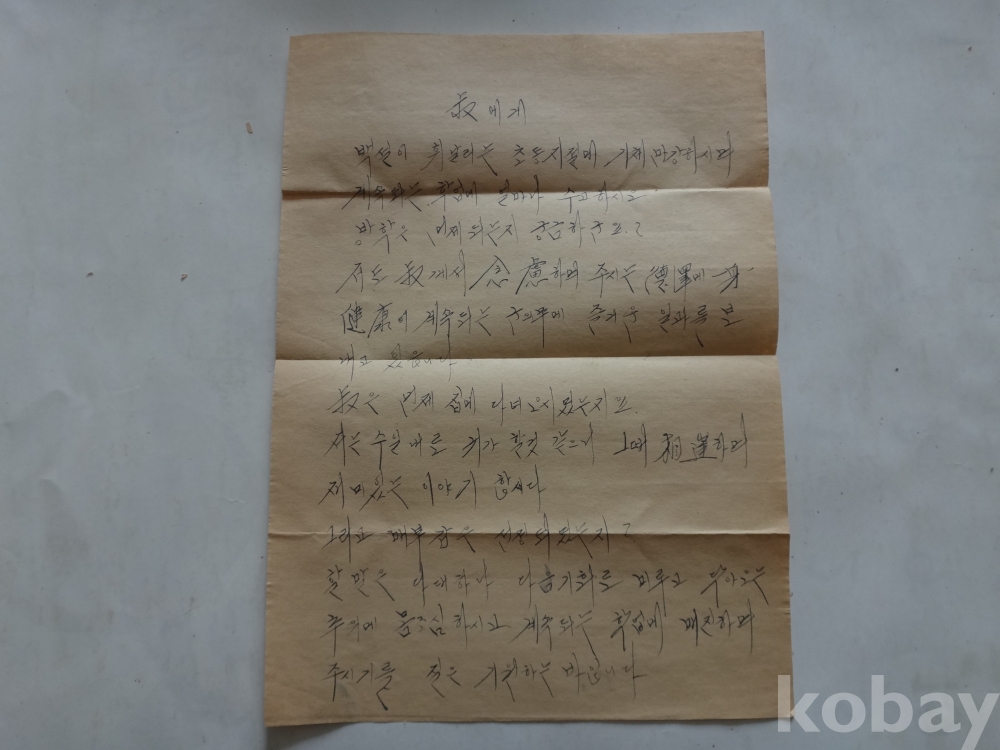 叔에게
백설이 휘날리는 초동지절에 기체만강하시며
계속되는 학업에 얼마나 수고하시오
방학은 언제 되는지 궁금하구요?
저도 叔께서 念慮하여 주시는 德澤에 身
健康이 계속되는 군의무에 즐거운 일과를 보
내고 있읍니다
叔은 언제 집에 다녀오시었는지요.
저는 수일내로 휴가 할것 같으니 그때 相逢하여
재미있는 이야기 합시다
그리고 매부감은 선정되었는지?
할말은 다대하나 다음기회로 미루고 닥아오는
추위에 몸조심하시고 계속되는 학업에 매진하여
주시기를 전은 기원하는 바입니다
kobay